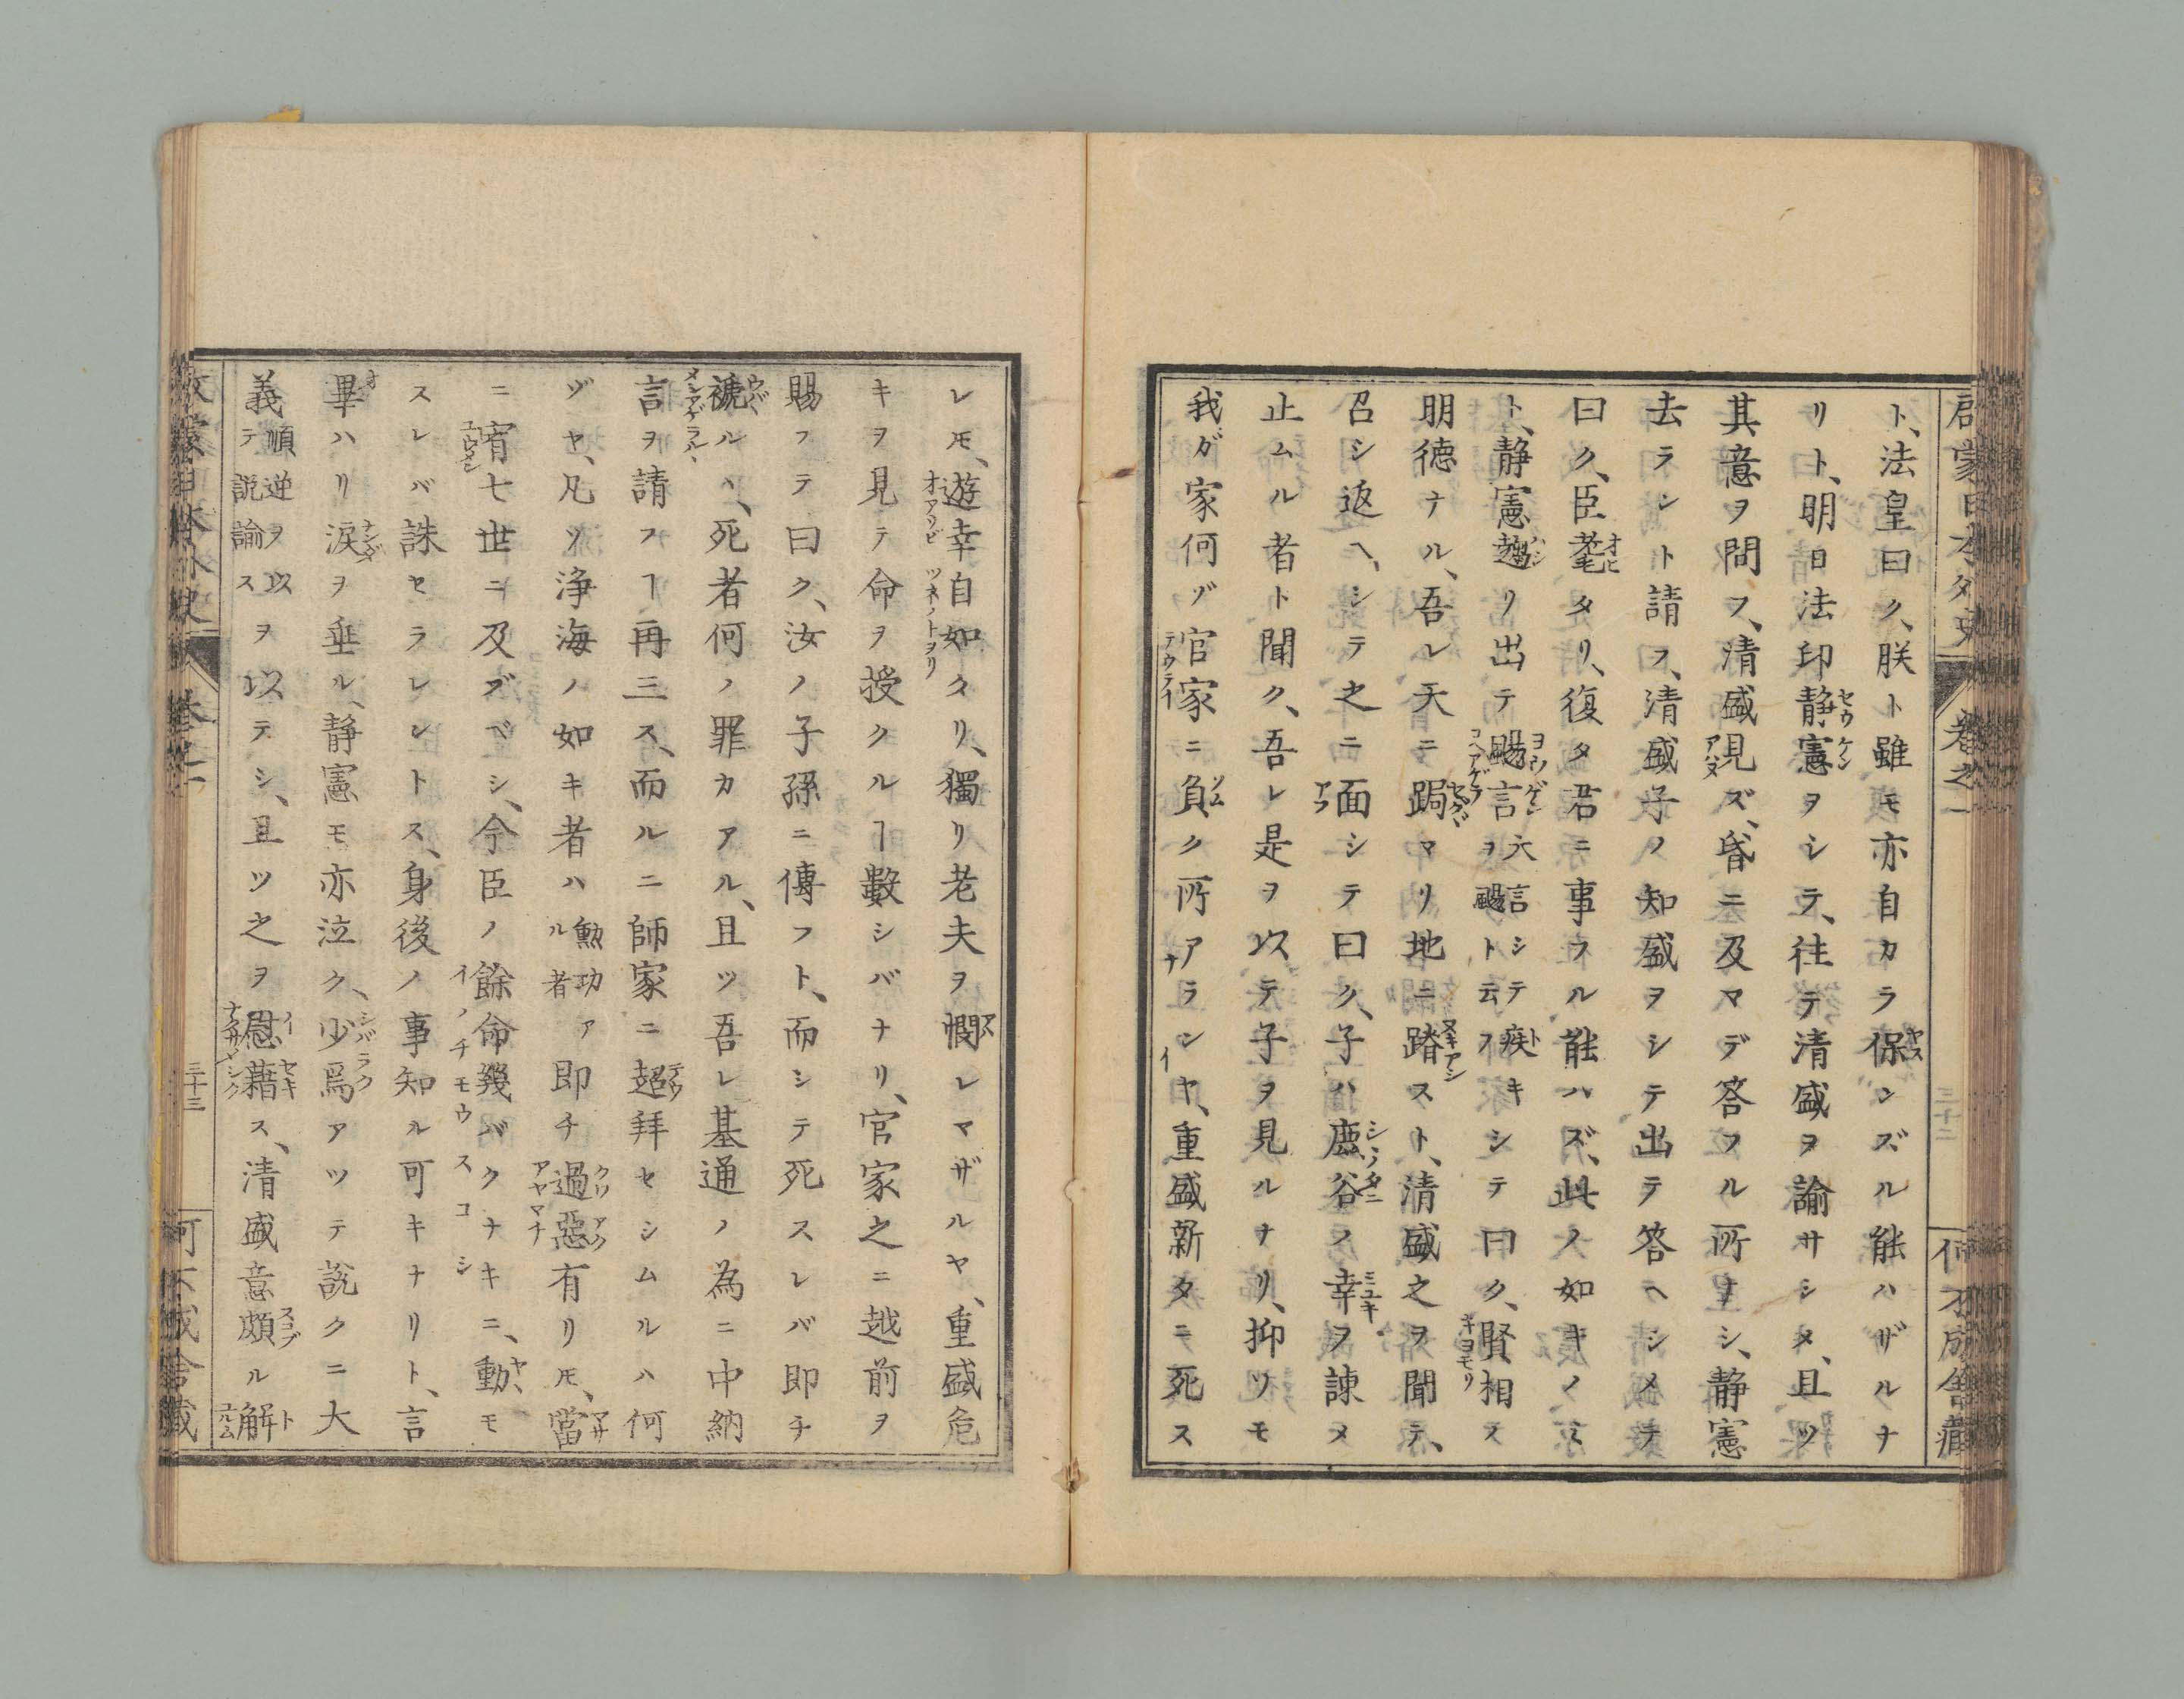 啓蒙日本外史 卷之一 三十二 何不成舎藏
ト、法皇曰ク、朕ト雖モ亦自カラ保ンズル能ハザルナ
リト、明日法印静憲ヲシテ、往テ清盛ヲ諭サシメ、且ツ
其意ヲ問フ、清盛見ズ、昏ニ及マデ答フル所ナシ、静憲
去ラント請フ、清盛子ノ知盛ヲシテ出テ答ヘシメテ
曰ク、臣耄タリ、復タ君ニ事フル能ハズ、此ノ如キノミ
ト、静憲趨リ出テ颺言大言シテ疾キヲ颺ト云フシテ曰ク、賢相ス
明徳ナル、吾レ天ニ跼マリ地ニ蹐スト、清盛之ヲ聞テ、
召シ返ヘシテ之ニ面シテ曰ク、子ハ鹿谷ノ幸ヲ諫メ
止ムル者ト聞ク、吾レ是ヲ以テ子ヲ見ルナリ、抑ツモ
我ガ家何ゾ官家ニ負ク所アランヤ、重盛新タニ死ス
レ𪜈、遊幸自如タリ、獨リ老夫ヲ憫レマザルヤ、重盛危
キヲ見テ命ヲ授クルヿ數シバナリ、官家之ニ越前ヲ
賜フテ曰ク、汝ノ子孫ニ傳フト、而シテ死スレバ即チ
褫ルハ、死者何ノ罪カアル、且ツ吾レ基通ノ為ニ中納
言ヲ請フヿ再三ス、而ルニ師家ニ超拜セシムルハ何
ヅヤ、凡ソ浄海ノ如キ者ハ勲功アル者即チ過惡有リ𪜈、當
ニ宥七世ニ及ブベシ、今臣ノ餘命幾バクナキニ、動モ
スレバ誅セラレントス、身後ノ事知ル可キナリト、言
畢ハリ涙ヲ垂ル、静憲モ亦泣ク、少焉アツテ説クニ大
義順逆ヲ以テ説諭スヲ以テシ、且ツ之ヲ慰藉ス、清盛意頗ル解
卷之一 三十三